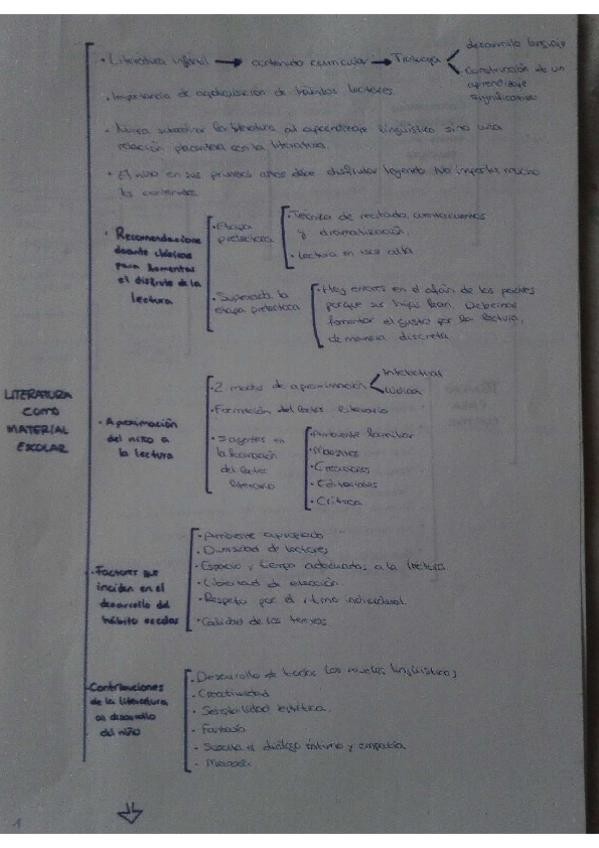 · Literatura infantil → contenido curricular → Trabaja
desarrollo lenguaje
Construcción de un
aprendizaje
significativo
· Importancia de adquisición de hábitos lectores.
· Nunca subordinar la literatura al aprendizaje lingüístico sino una
relación placentera con la literatura.
· El niño en sus primeros años debe disfrutar leyendo. No importa mucho
los contenidos.
· Recomendaciones
docente clásicas
para fomentar
el disfrute de la
lectura
· Etapa
prelectora
· Técnica de recitado, cuentacuentos
y dramatización.
· Lectura en voz alta
· Superada la
etapa prelectora
· Hay errores en el afán de los padres
porque sus hijos lean. Debemos
fomentar el gusto por la lectura,
de manera discreta.
LITERATURA
COMO
MATERIAL
ESCOLAR
· Aproximación
del niño a
la lectura
· 2 modos de aproximación
Intelectual
Lúdica
· Formación del lector literario
· 5 agentes en
la formación
del lector
literario
· Ambiente familiar
· Maestros
· Creadores
· Editoriales
· Crítica
· Factores que
inciden en el
desarrollo del
hábito
· Ambiente apropiado
· Diversidad de lectores
· Espacio y tiempo adecuados a la lectura
· Libertad de elección.
· Respeto por el ritmo individual.
· Calidad de los textos
· Contribuciones
de la literatura
al desarrollo
del niño
· Desarrollo de todos los niveles lingüísticos
· Creatividad
· Sensibilidad estética.
· Fantasía
· Suscita el diálogo íntimo y empatía
1